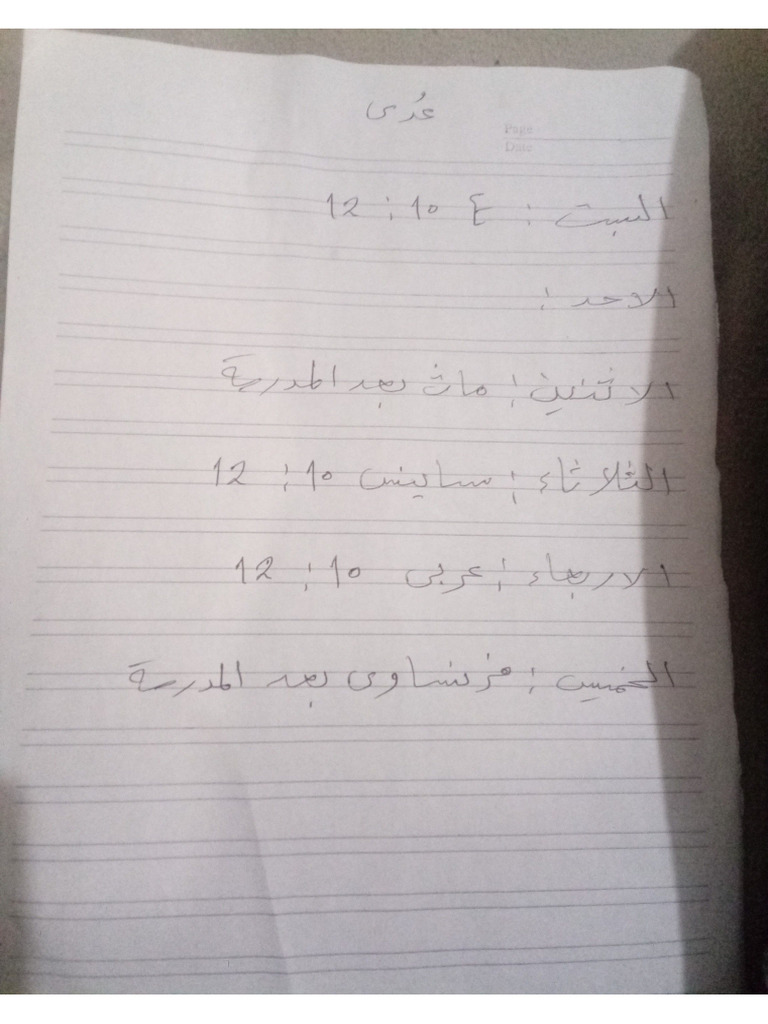 عُدى
Page
Date
السبت : E 10 : 12
الاحد :
الاثنين : ماث بعد المدرسة
الثلاثاء : ساينس 10 : 12
الاربعاء : عربى 10 : 12
الخميس : فرنساوى بعد المدرسة